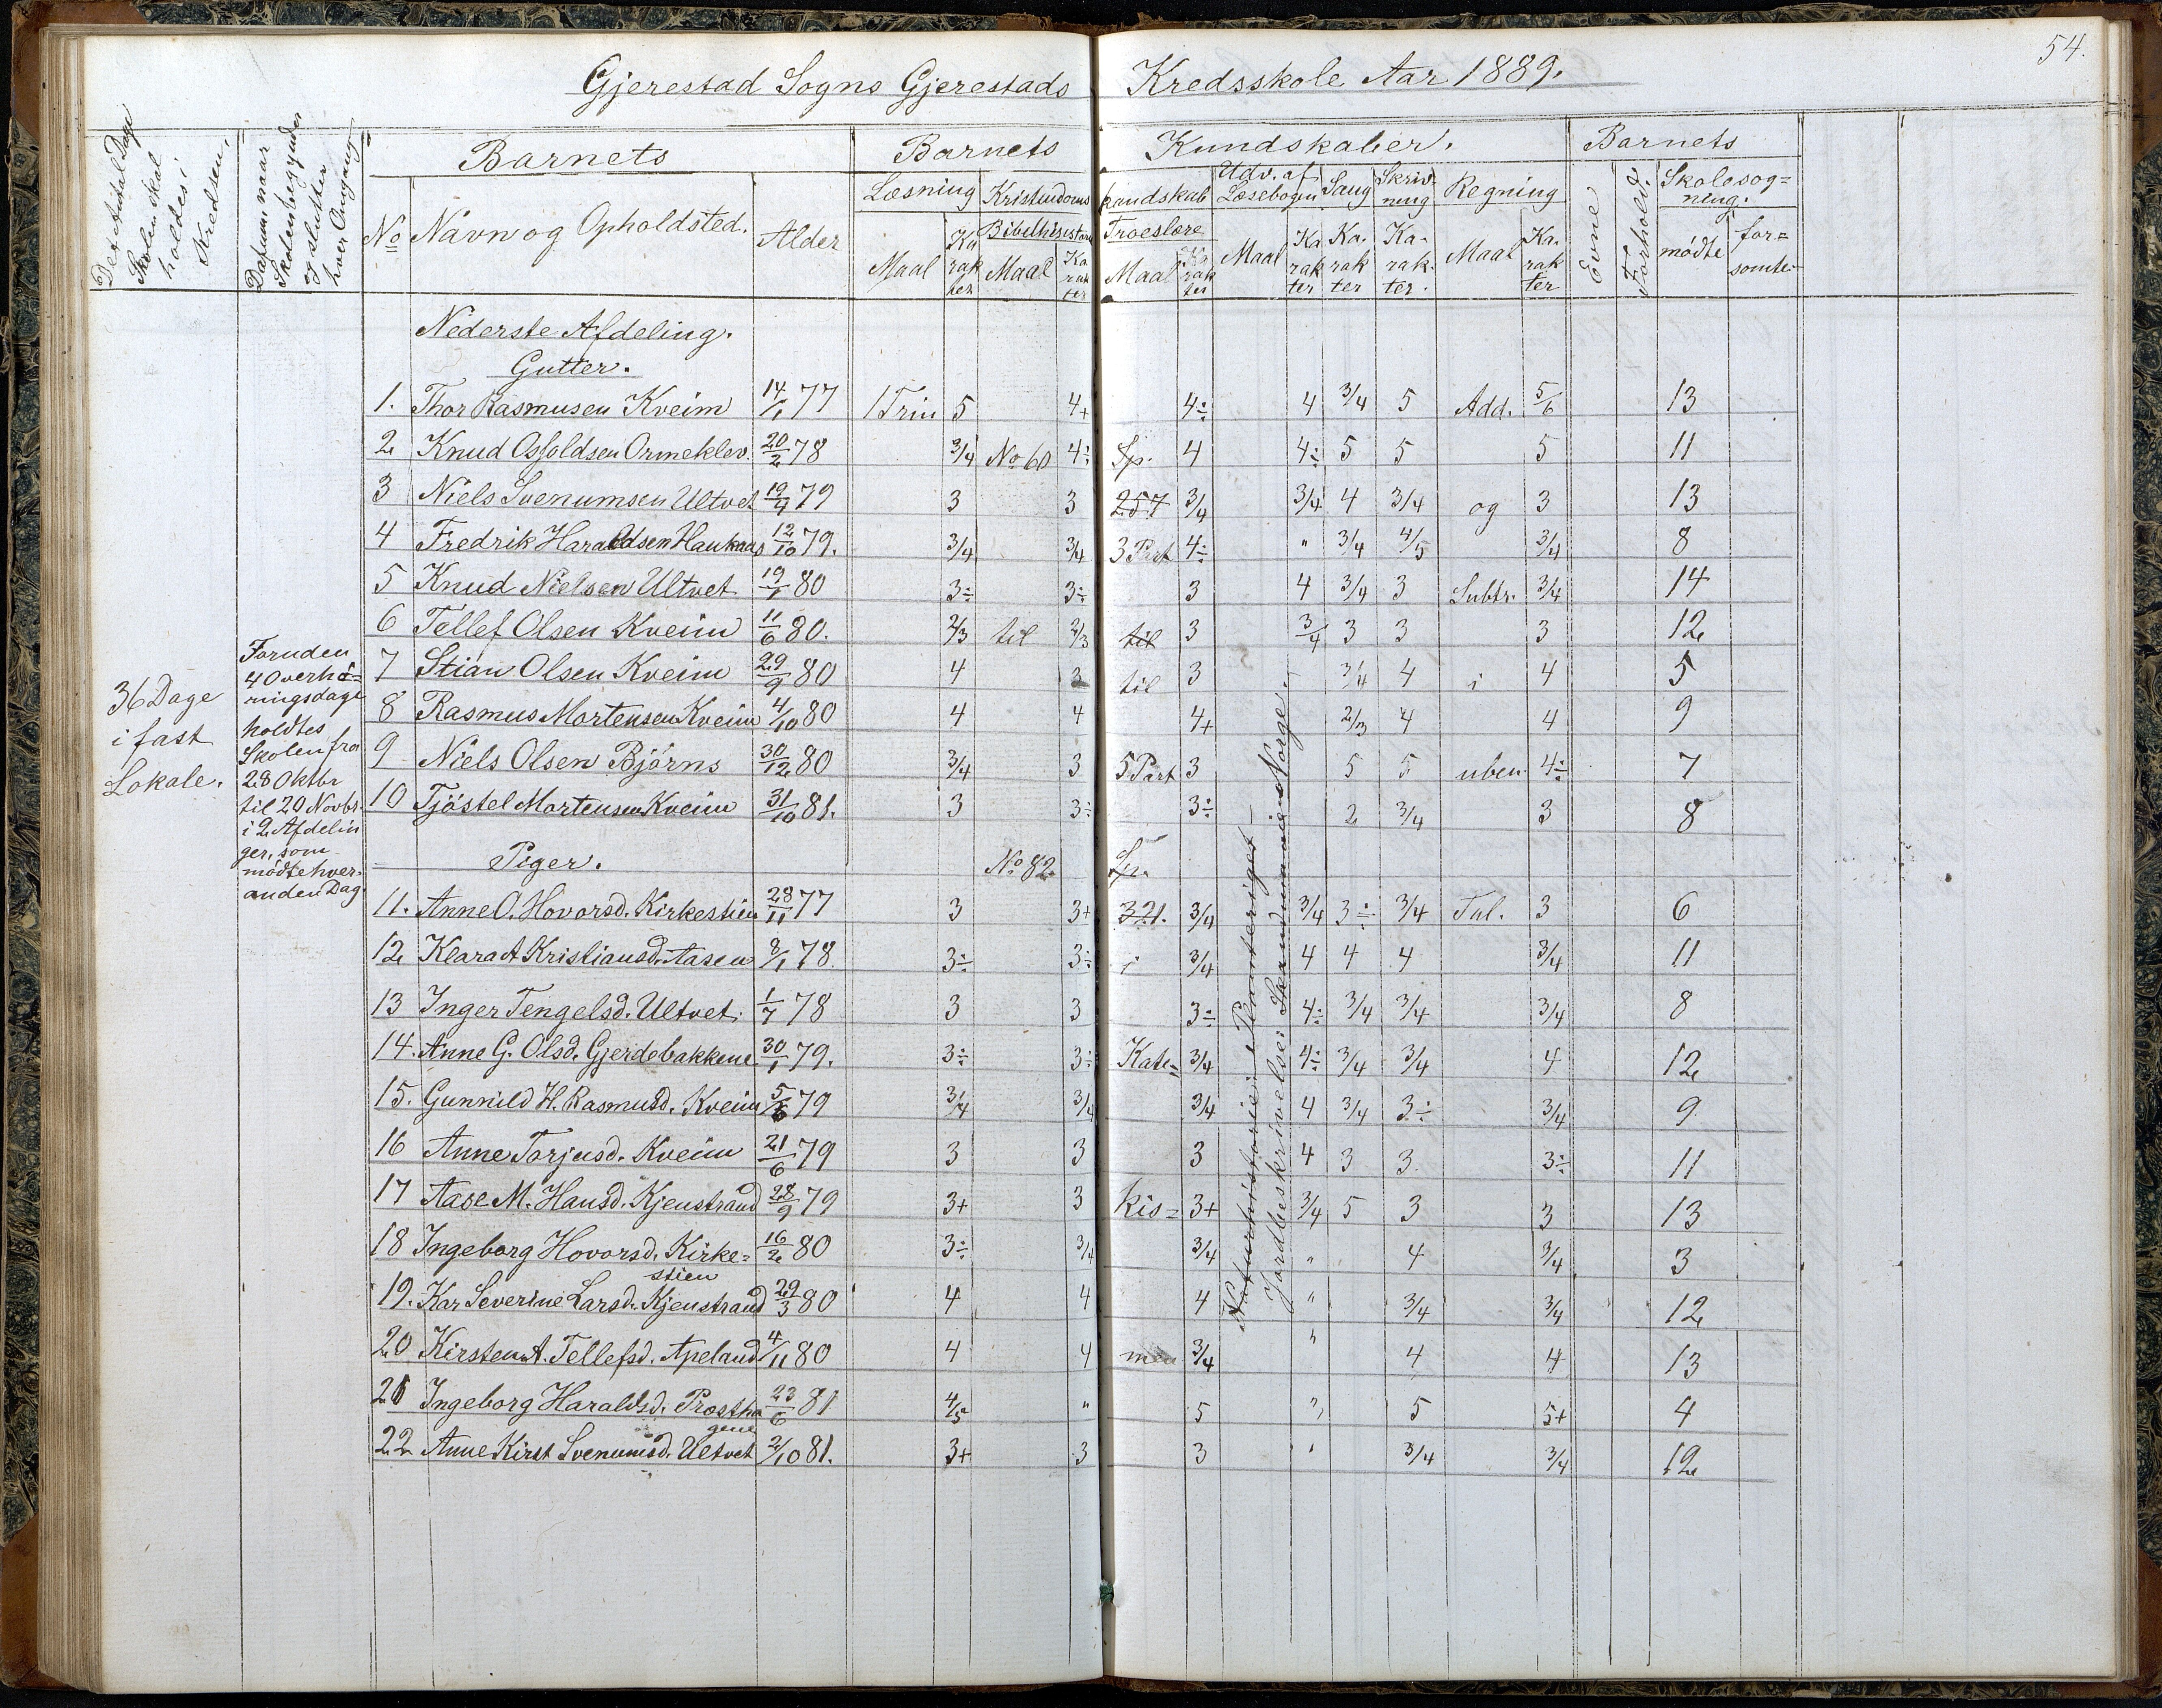 54.
Gjerestad Sogns Gjerestads Kredsskole Aar 1889.
Det Antal Dage Skolen skal holdes i Kredsen,
Datum naar Skolen begynder og slutter hver Omgang
Barnets
Barnets Kundskaber.
Barnets
No
Navn og Opholdsted.
Alder
Læsning
Kristendoms kundskab
Udv. af Læsebogen
Sang
Skrivning
Regning
Evne
Forhold.
Skolesøgning.
Bibelhistorie
Troeslære
Maal
Karakter
Maal
Karakter
Maal
Karakter
Maal
Karakter
Karakter
Karakter.
Maal
Karakter
mødte
forsømte
Nederste Afdeling.
Gutter.
1. Thor Rasmusen Kveim 14/1 77 1 Trin 5 4+ 4÷ 4 3/4 5 Add. 5/6 13
2 Knud Osfoldsen Ormeklev. 20/2 78 3/4 No 60 4÷ Sp. 4 4÷ 5 5 5 11
3 Niels Svenumsen Ultvet 19/4 79 3 3 257 3/4 3/4 4 3/4 og 3 13
4 Fredrik Haraldsen Haukaas 12/10 79. 3/4 3/4 3 Part 4÷ " 3/4 4/5 3/4 8
5 Knud Nielsen Ultvet 19/1 80 3÷ 3÷ 3 4 3/4 3 Subtr. 3/4 14
6 Tellef Olsen Kveim 11/6 80. 2/3 til 2/3 til 3 3/4 3 3 3 12
7 Stian Olsen Kveim 29/9 80 4 3 til 3 3/4 4 i 4 5
8 Rasmus Mortensen Kveim 4/10 80 4 4 4+ 2/3 4 4 9
9 Niels Olsen Bjørns 30/12 80 3/4 3 5 Part 3 5 5 uben 4÷ 7
10 Tjøstel Mortensen Kveim 31/10 81. 3 3÷ 3÷ 2 3/4 3 8
Piger. No 82 Sp.
11. Anne O. Hovorsd. Kirkestien 28/11 77 3 3+ 321. 3/4 3/4 3÷ 3/4 Tal. 3 6
12 Klara A Kristiansd. Aasen 8/1 78. 3÷ 3÷ i 3/4 4 4 4 3/4 11
13 Inger Tengelsd. Ultvet. 1/7 78 3 3 3÷ 4÷ 3/4 3/4 3/4 8
14. Anne G. Olsd. Gjerdebakkene 30/1 79. 3÷ 3÷ Kate= 3/4 4÷ 3/4 3/4 4 12
15. Gunnild H. Rasmusd. Kveim 5/6 79 3/4 3/4 3/4 4 3/4 3÷ 3/4 9
16 Anne Torjusd. Kveim 21/6 79 3 3 3 4 3 3 3÷ 11
17 Aase M. Hansd. Kjenstrand 28/9 79 3+ 3 kis= 3+ 3/4 5 3 3 13
18 Ingeborg Hovorsd. Kirke= 16/2 80 3÷ 3/4 3/4 " 4 3/4 3
stien
19. Kar Severine Larsd. Kjenstrand 29/3 80 4 4 4 " 3/4 3/4 12
20 Kirsten A. Tellefsd. Apeland 4/11 80 4 4 men 3/4 " 4 4 13
21 Ingeborg Haraldsd. Prostha 23/6 81 4/5 " 5 " 5 5+ 4
gene
22 Anne Kirst Svenumsd. Ultvet 2/10 81. 3+ 3 3 " 3/4 3/4 12
36 Dage
i fast
Lokale.
Foruden
4 Overhø=
ringsdage
holdtes
Skolen fra
28 Oktbr
til 20 Novbr.
i 2 Afdelin
ger, som
mødte hver
anden Dag.
Naturhistorie: Planteriget —
Jordbeskrivelse: Skandinavien Norge.